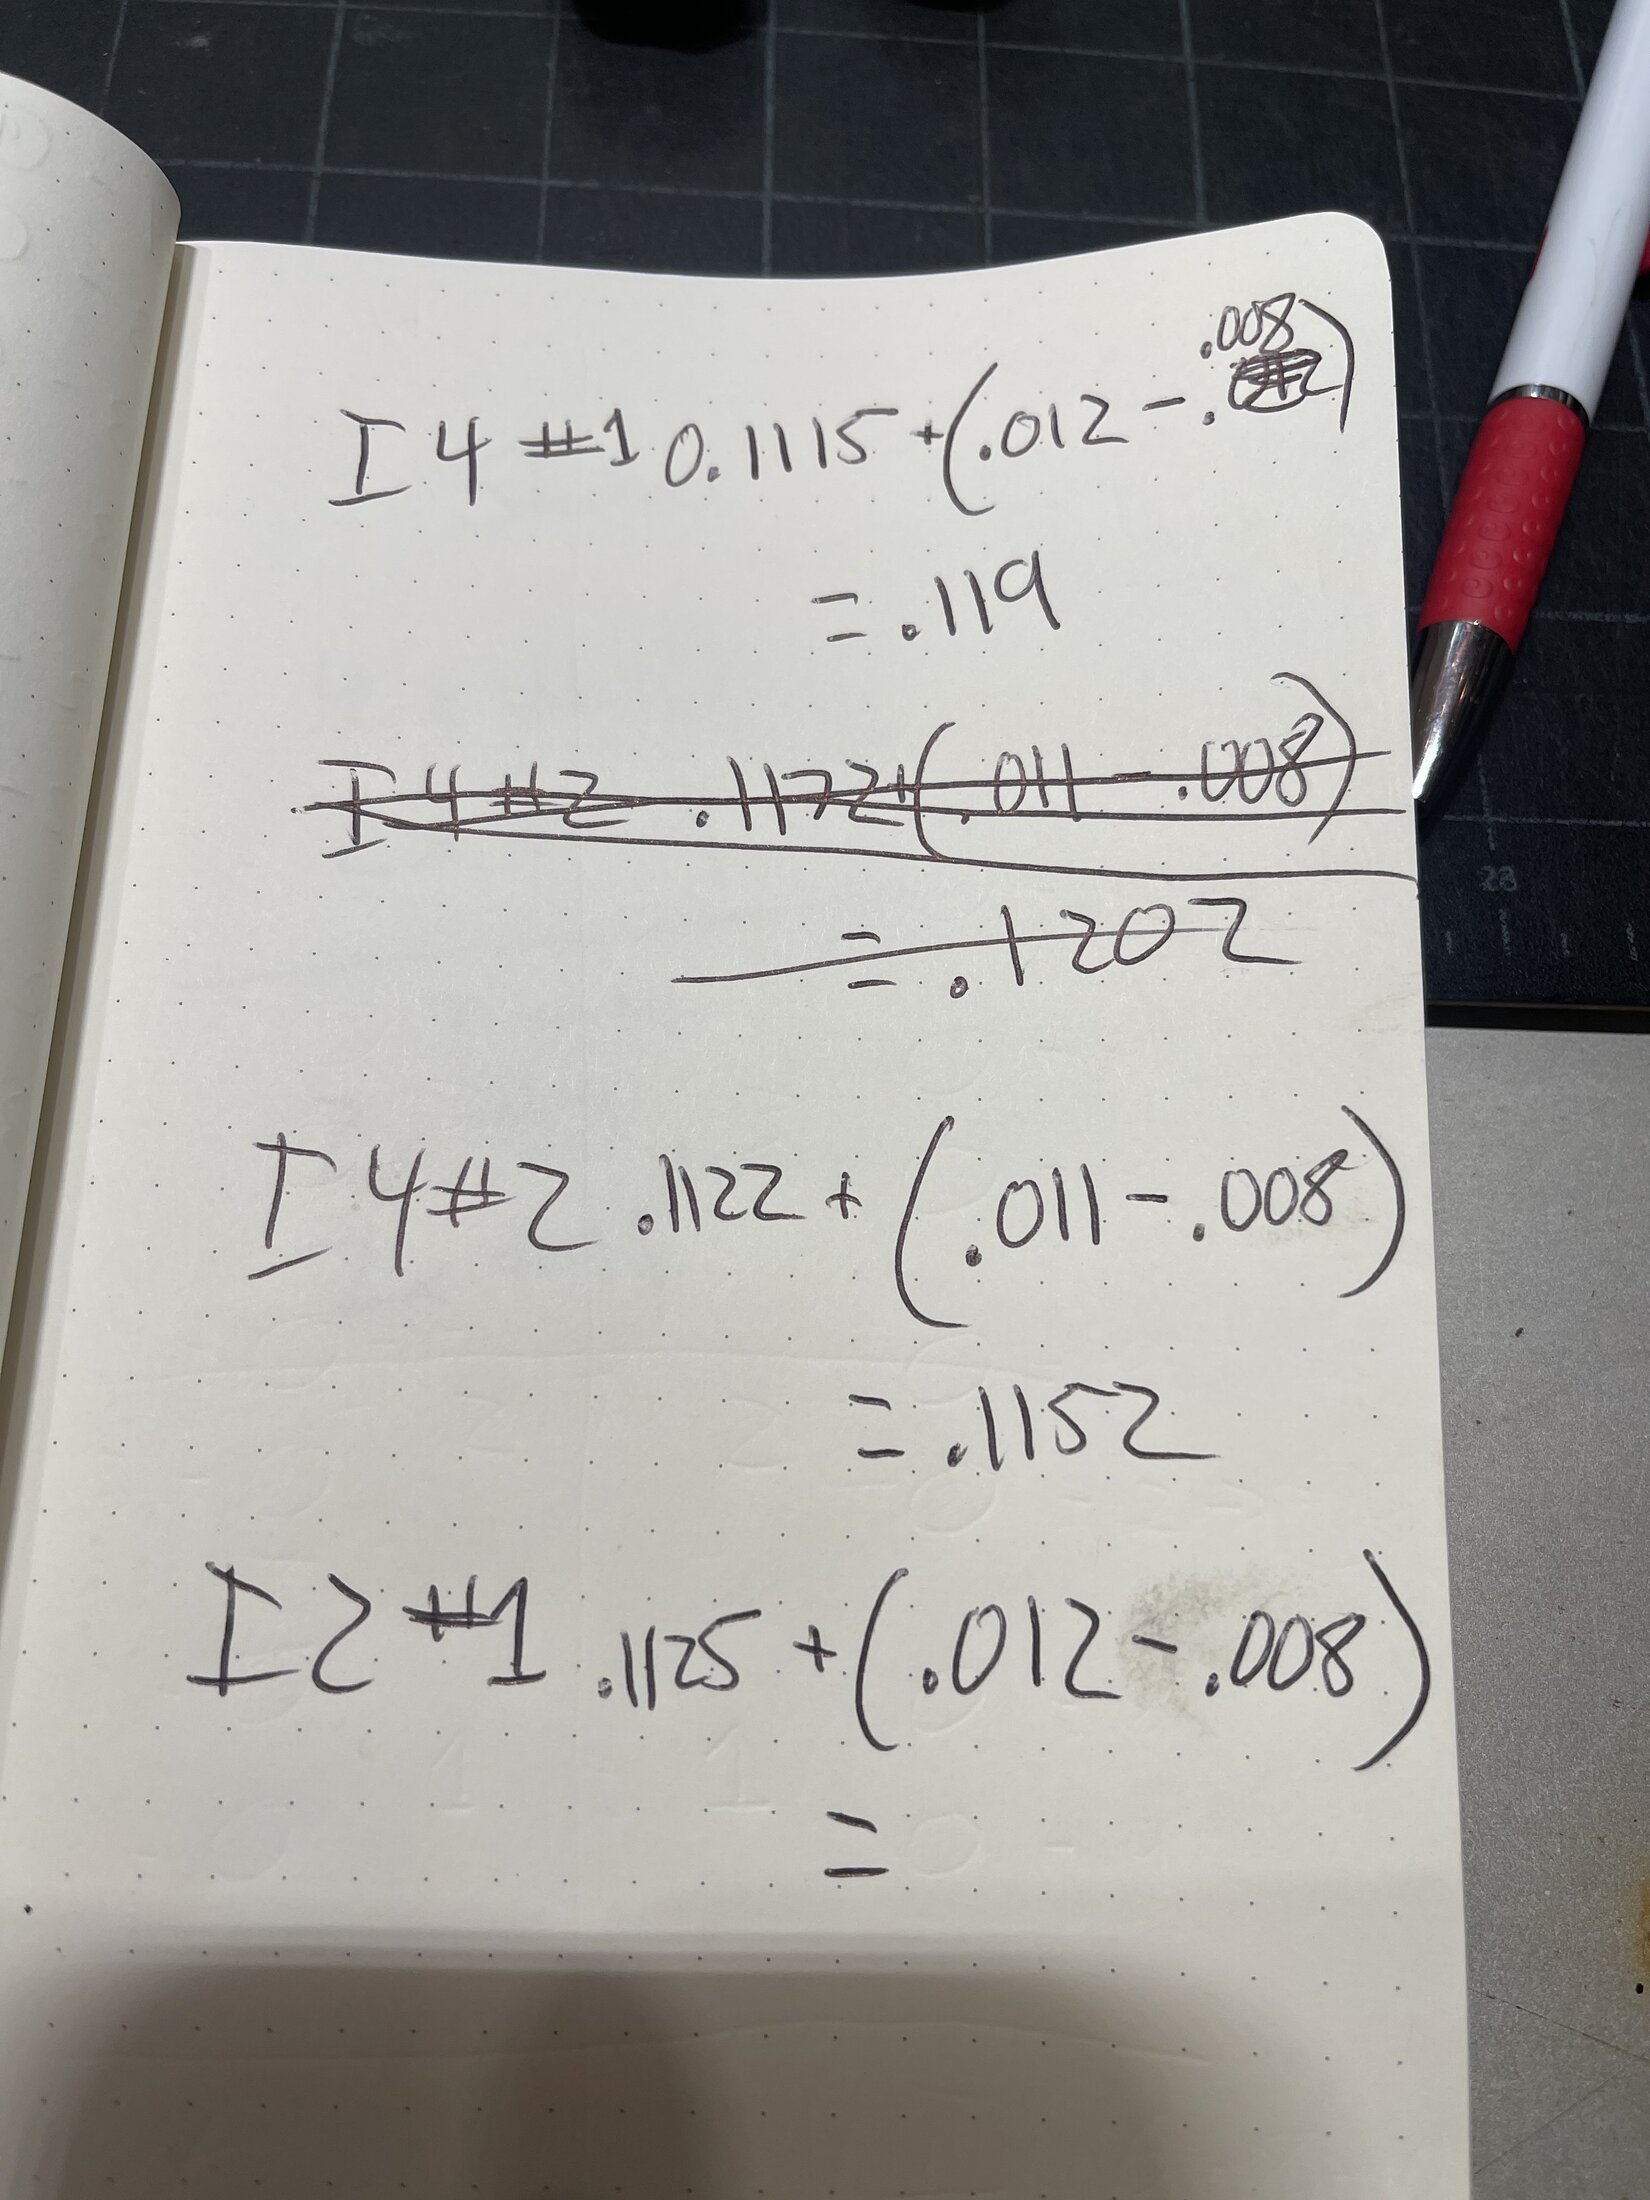 I4 #1 0.1115 + (.012 - .008)
= .119
I4 #2 .1172 + (.011 - .008)
= .1202
I4 #2 .1122 + (.011 - .008)
= .1152
I2 #1 .1125 + (.012 - .008)
=
28